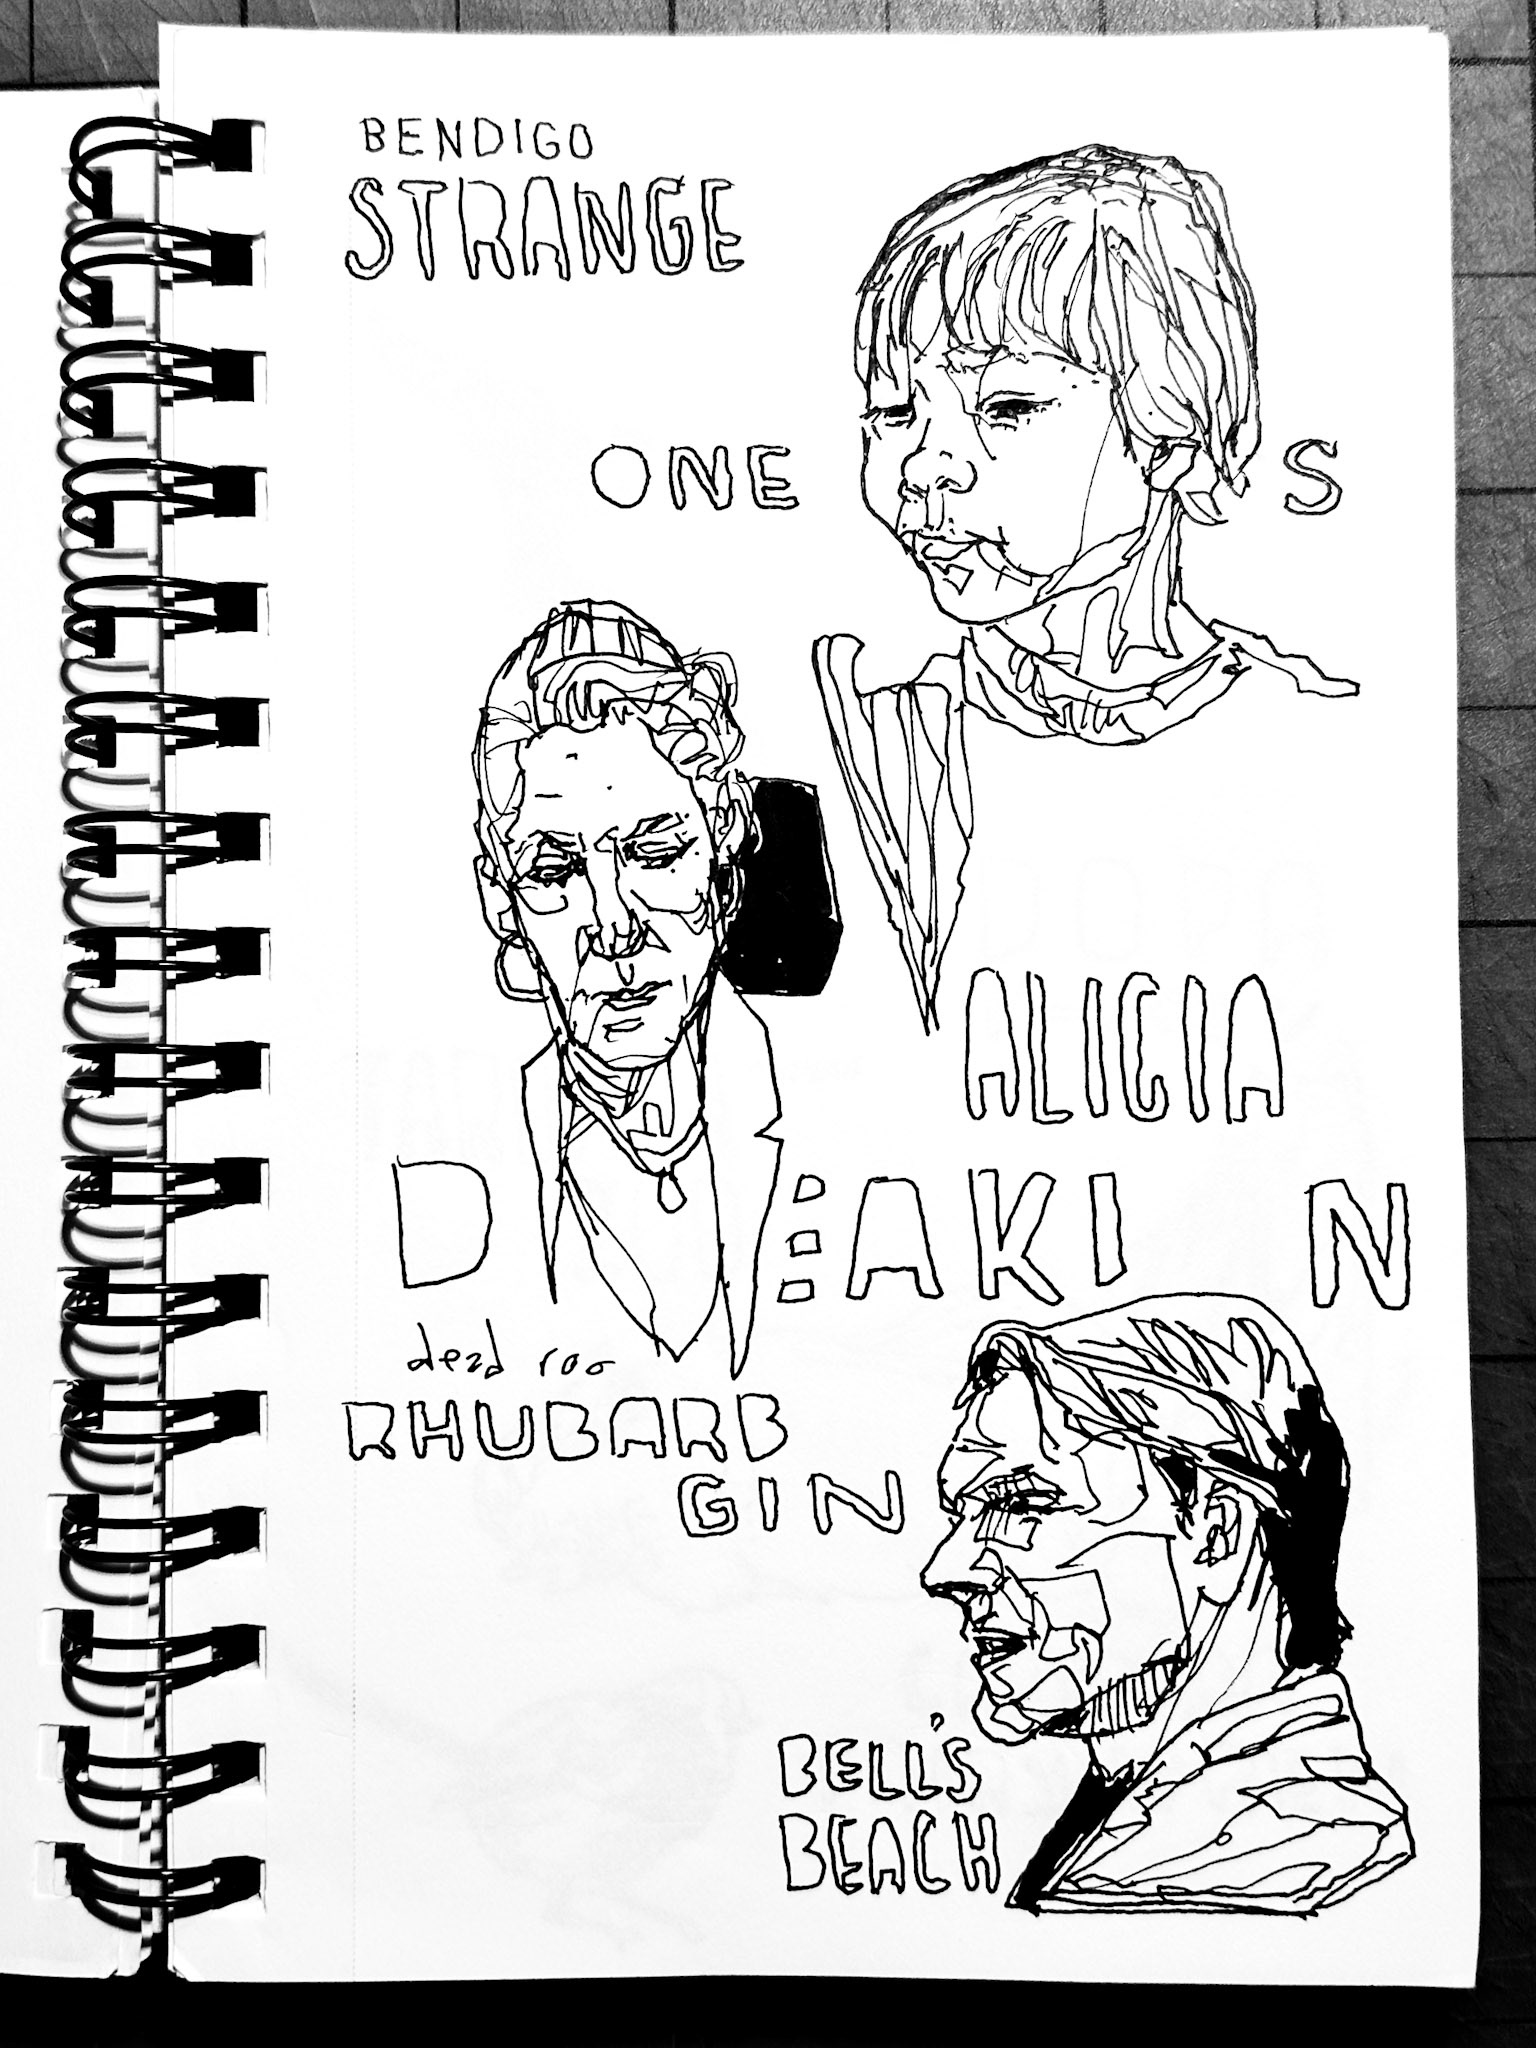 BENDIGO
STRANGE
ONE S
ALICIA
DEAKIN
dead roo
RHUBARB
GIN
BELL'S
BEACH